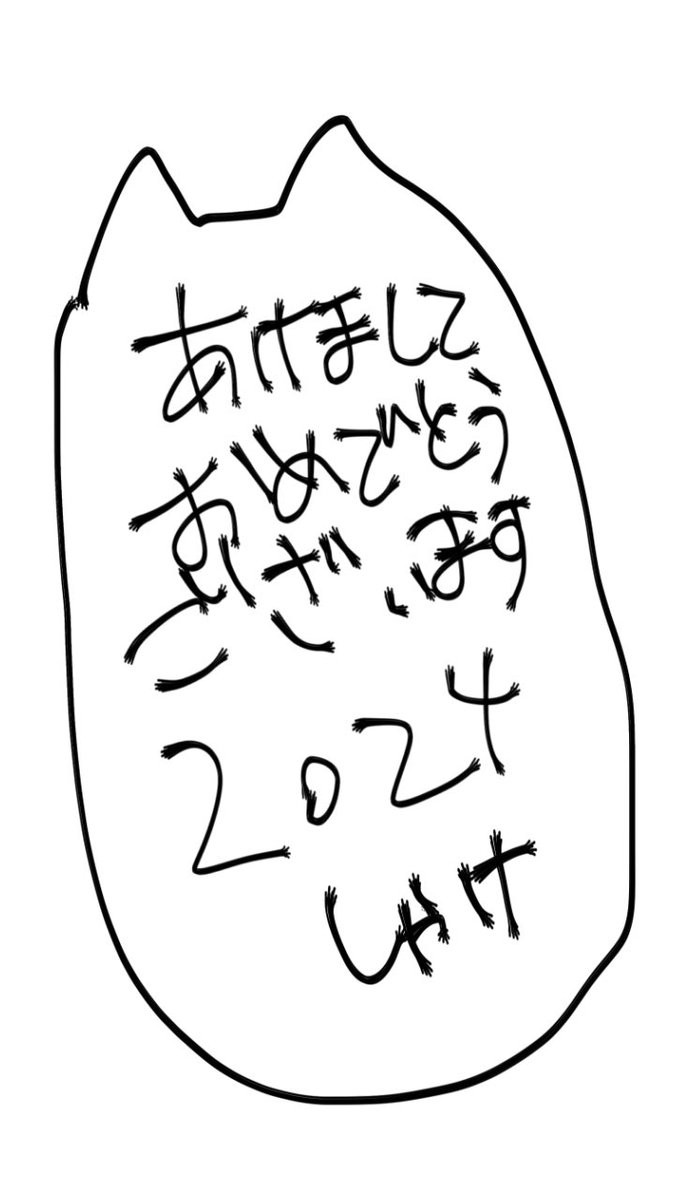 あけまして
おめでとう
ございます
2024
しゃけ